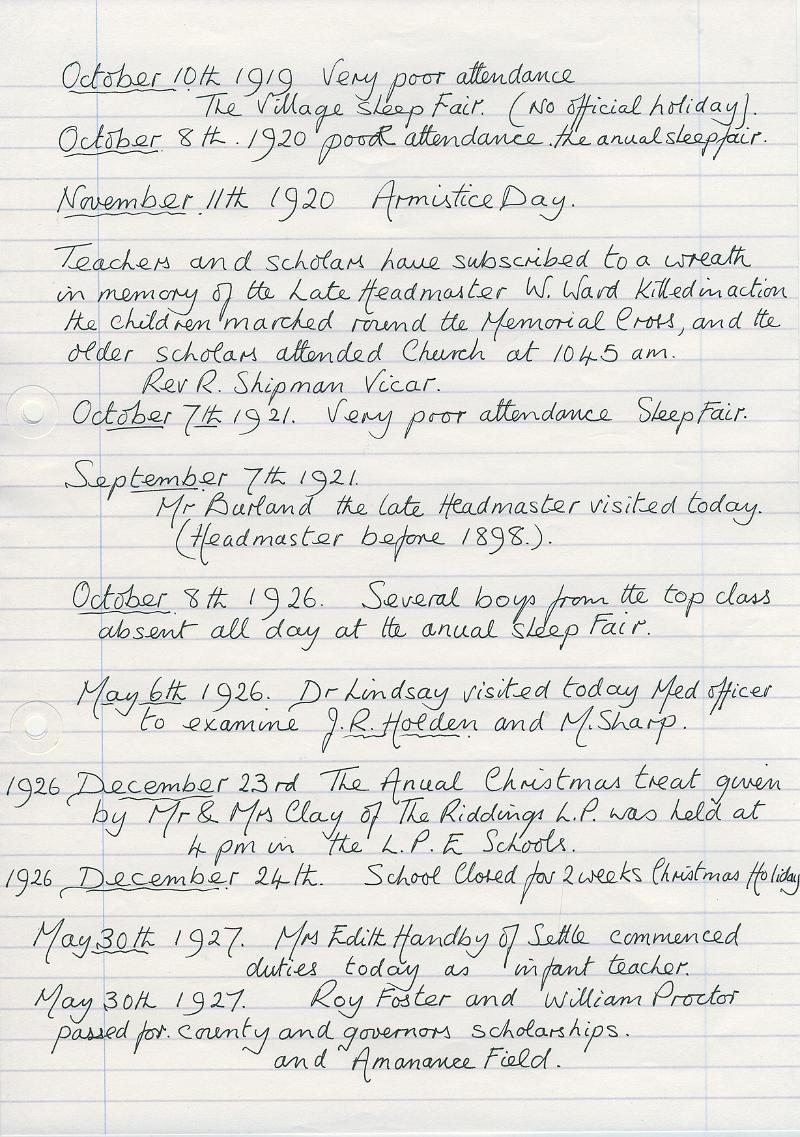 October 10th 1919 Very poor attendance
The Village sleep Fair. (No official holiday).
October 8th. 1920 poor attendance. the anual sleep fair.
November 11th 1920 Armistice Day.
Teachers and scholars have subscribed to a wreath
in memory of the Late Headmaster W. Ward Killed in action
the children marched round the Memorial Cross, and the
older scholars attended Church at 1045 am.
Rev R. Shipman Vicar.
October 7th 1921. Very poor attendance Sleep Fair.
September 7th 1921.
Mr Burland the late Headmaster visited today.
(Headmaster before 1898.).
October 8th 1926. Several boys from the top class
absent all day at the anual sleep Fair.
May 6th 1926. Dr Lindsay visited today Med officer
to examine J.R. Holden and M. Sharp.
1926 December 23rd The Anual Christmas treat given
by Mr & Mrs Clay of The Riddings L.P. was held at
4 pm in the L.P.E Schools.
1926 December 24th. School Closed for 2 weeks Christmas Holiday
May 30th 1927. Mrs Edith Handby of Settle commenced
duties today as infant teacher.
May 30th 1927. Roy Foster and William Proctor
passed for. county and governors scholarships.
and Amanance Field.